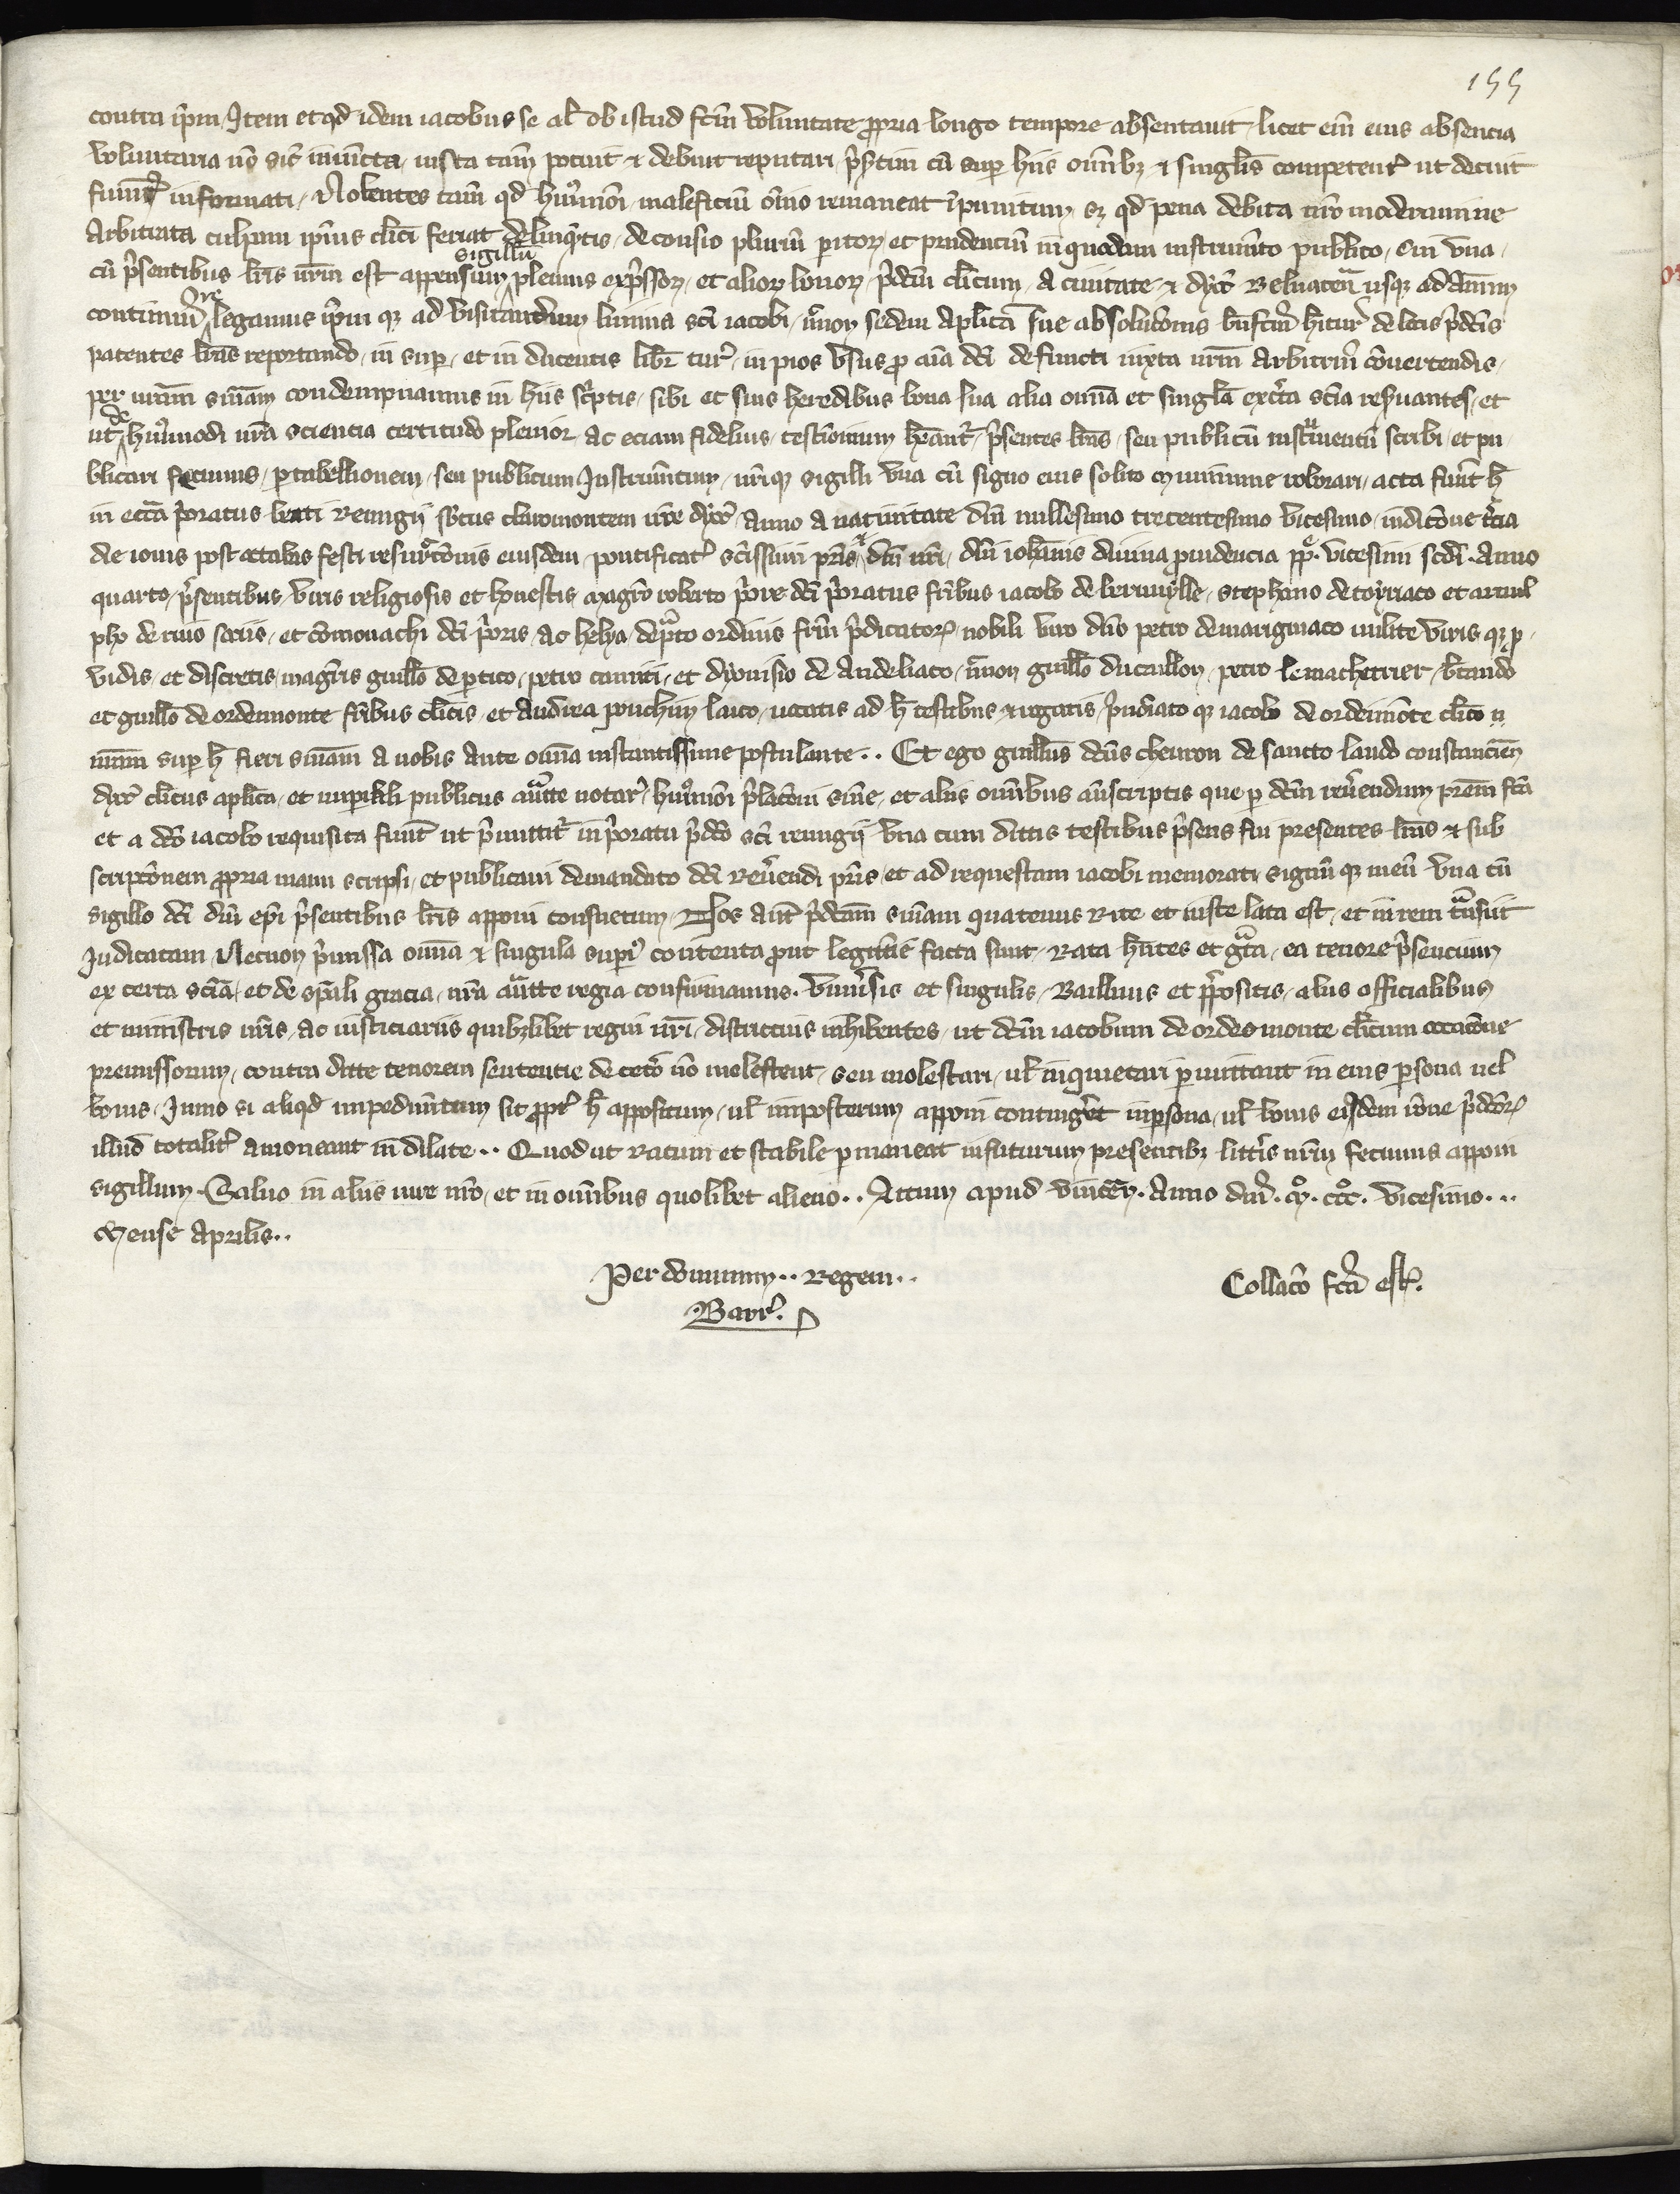 155
contra ip̄m. Item et qd̛ idem iacobus se al̛ ob istud fc̄m voluntate p̱pria longo tempore absentauit, licet em̄ eius absencia
voluntaria nō sit̛ iniuncta, iusta tam̄ potuit & debuit reputari, p̄s̛tim cū sup̱ hiis om̄ibꝫ & singl̄is competent̛ ut decuit
fuim̛ informati, Nolentes tam̄ qd̛ hui̛moi̛ maleficiū om̄io remaneat īpunitum, sꝫ qd̛ pena debita nr̄o moderamine
Arbitrata culpam ip̄ius cl̄ici feriat delinq̄ntis, de consio pluriū p̱itoꝝ et prudenciū in quodam instrum̄to publico, cui vna,
cū p̄sentibus lr̄is nr̄m est appensum sigillū, plenius exp̄ssoꝝ, et alioꝝ bonoꝝ, p̄dc̄m cl̄icum, A ciuitate & dyoc̄ Beluaceñ usqꝫ ad Annum
continuū re, legamus ip̄m qꝫ ad visitandum limina sc̄i iacobi, nc̄non sedem Aplīcā sue absoluc̄onis bn̄fciū hitur̛ de lctis p̄dc̄is
patentes lr̄as reportando, in sup̱, et in ducentis libr̄ tur̛, in pios vsus p̱ aīa dc̄i defuncti iuxta nr̄m Arbitriū cōuertendis,
per nr̄am sn̄iam condempnamus in hiis sc̛ptis, sibi et suis heredibus bona sua alia om̄ia et singl̄a exc̛ta sc̄ia reſuantes, et
ut de hui̛modi nr̄a sciencia certitudo plenior, ac eciam fidelius, testīonium heant̛, p̄sentes lr̄as, seu publicū inst̛mentū scribi, et pu
blicari fecimus, p̱ tabellionem, seu publicum Instrum̄tum, nr̄i qꝫ sigilli vna cū signo eius solito munimine roborari, acta fuer̄t h̄
in ecc̄a p̄oratus beati Remigij sb̄tus claromontem nr̄e dyoc̄ Anno A natiuitate dn̄i millesimo trecentesimo vicesimo, indictōne tc̛ia
die iouis post octabas festi resurr̛ctōnis eiusdem, pontificat̛ sc̄issimi pr̄is & dn̄i nr̄i, dn̄i ioh̄annis diuina p̱uidencia pp̄. vicesimi sc̄di. Anno
quarto, p̄sentibus, viris religiosis et honestis magr̄o roberto p̄ore dc̄i p̄oratus fr̄ibus iacobo de bermville, stephano de toyriaco et arnul
pho de riuo sociis, et cōmonachi dc̄i p̄oris, ac helya, dep̄to ordinis fr̄m p̄dicatoꝝ, nobili viro dn̄o petro de mariginaco milite viris qꝫ p̱
vidis, et discretis, magr̄is guill̄o de p̱tico, petro cauriti, et dyonisio de Andeliaco, nc̄non guill̄o ducaillon, petro lemachetrier, btando
et guill̄o de ordeimonte fr̄ibus cl̄icis, et Andrea pouchin laico, uocatis ad h̄ testibus & rogatis, p̄no̅iato qꝫ iacobo de ordeimōte cl̄ico n
nr̄am sup̱ h̄ fieri sn̄iam a nobis ante om̄ia instantissime postulante.. Et ego guill̄us dc̄us cheuron de sancto laudo constancieñ
dyoc̄ cl̄icus aplīca, et imp̱iali publicus auc̄tte notar̛, hui̛moi̛ p̄lac̄oni sn̄ie, et aliis om̄ibus an̄scriptis que p̱ dc̄m reưendum pr̄em fc̄a
et a dc̄o iacobo requisita fuer̄t ut p̄mittit̛ in p̄oratu p̄dc̄o sc̄i remigij vna cum dictis testibus p̄sens fui presentes lr̄as & sub
scriptōnem p̱pria manu scripsi, et publicaui de mandato dc̄i Reưendi pr̄is, et ad requestam iacobi memorati signū qꝫ meū vna cū
sigillo dc̄i dn̄i ep̄i p̄sentibus lr̄is apponi consuetum, Nos aut̄ p̄dc̄am sn̄iam quatenus Rite et iuste lata est, et in rem tn̄siit
Iudicatam, Necnon p̄missa om̄ia & singula sup̱i̛ contenta p̱ut legitīe facta sunt, Rata hn̄tes et gr̄ta, ea tenore p̄sencium
ex certa sc̄ia, et de sp̄ali gracia, nr̄a auc̄tte regia confirmamus. vniưsis et singulis, Bailliuis et p̄positis, aliis officialibus
et ministris nr̄is, ac iusticiariis quibꝫlibet regni nr̄i, districtius inhibentes, ut dc̄m iacobum de ordeo monte cl̄icum occac̄one
premissorum, contra dicte tenorem sentencie de cetō nō molestent, seu molestari, ul̛ inquietari p̱mittant in eius p̱sona uel
bonis, Immo si aliqd̛ impedim̄tum sit p̱pt̛ h̄ appositum, ul̛ imposterum apponi conting̛et in p̱sona, ul̛ bonis eiusdem rōne p̄dc̄oꝝ
illud totalit̛ amoneant indilate.. Quod ut Ratum et stabile p̱maneat in futurum presentibꝫ litt̛is nr̄m fecimus apponi
sigillum. Saluo in aliis iure nr̄o, et in om̄ibus quolibet alieno.. Actum apud vinceñ. Anno dn̄i. mº. cccº. vicesimo...
Mense Aprilis..
Per dominum.. Regem..
Barr̛.
Collac̄o fc̄a est.